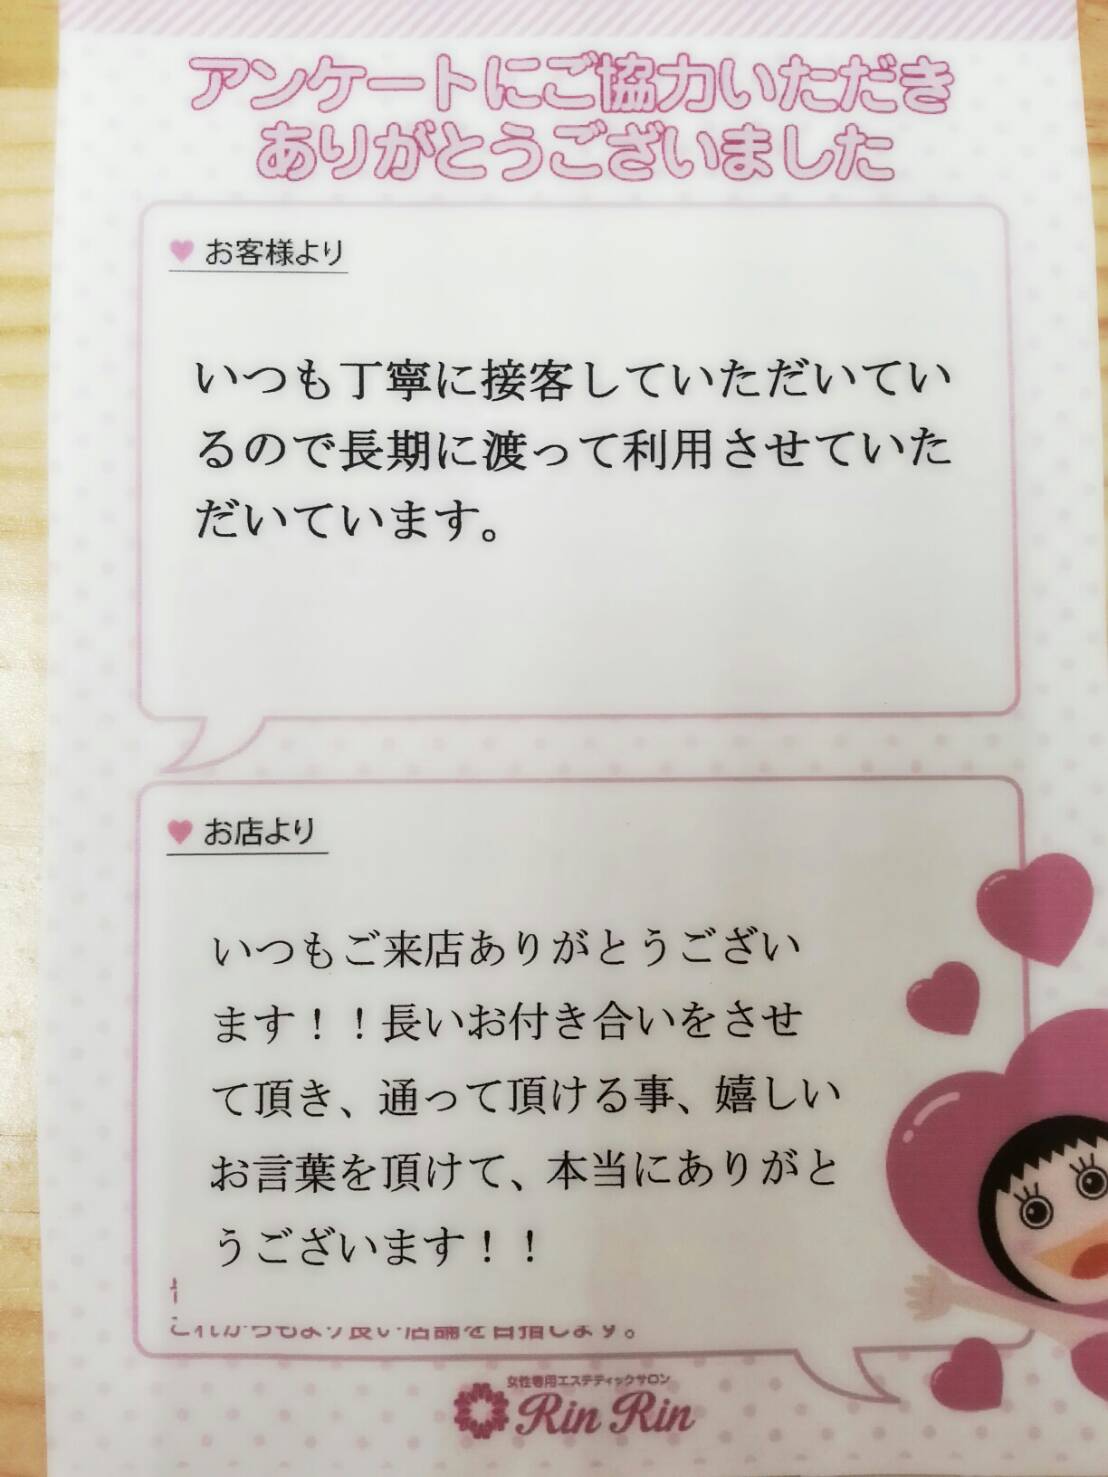 アンケートにご協力いただき
ありがとうございました
お客様より
いつも丁寧に接客していただいてい
るので長期に渡って利用させていた
だいています。
お店より
いつもご来店ありがとうござい
ます！！長いお付き合いをさせ
て頂き、通って頂ける事、嬉しい
お言葉を頂けて、本当にありがと
うございます！！
これからもより良い店舗を目指します。
女性専用エステティックサロン
Rin Rin